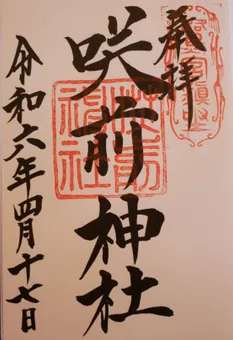 奉拝
咲前神社
令和六年四月十七日